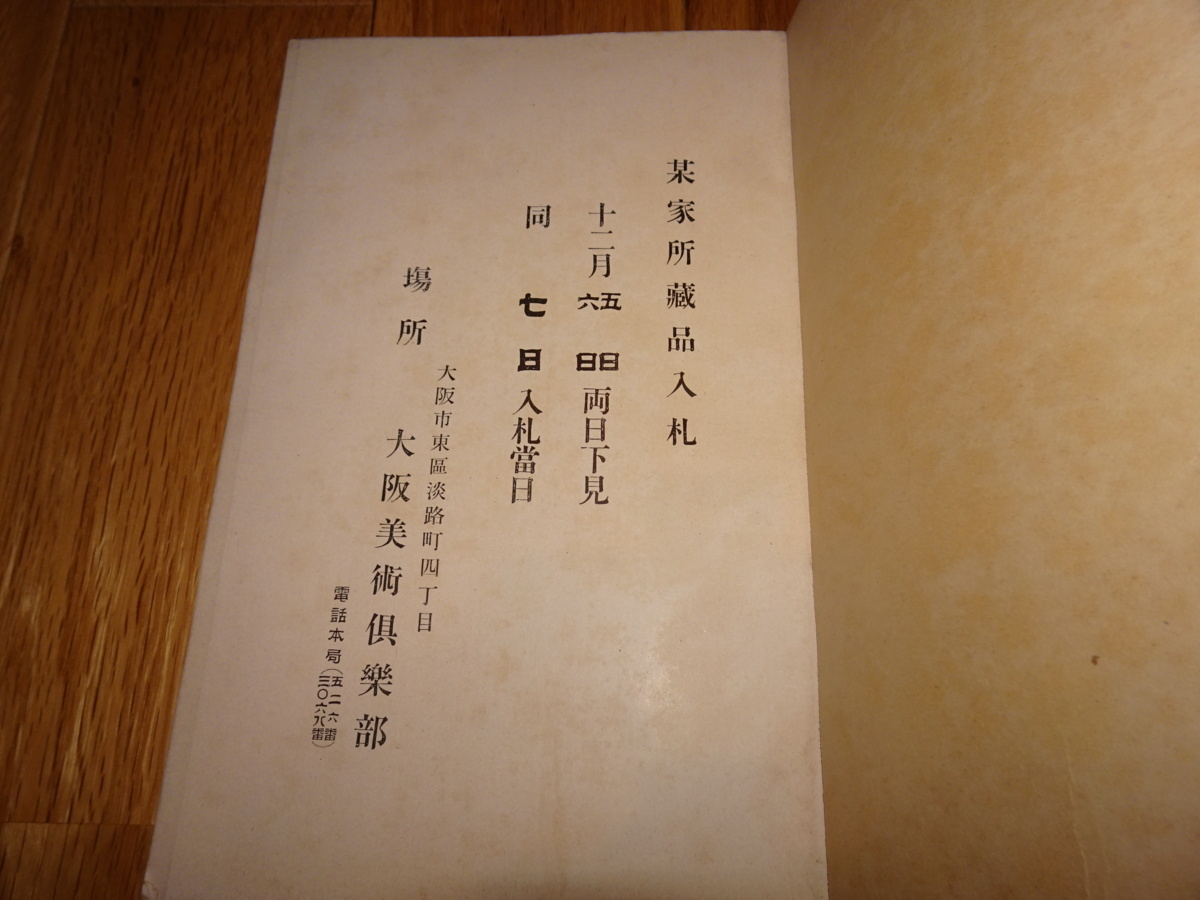 某家所藏品入札
十二月五日六日両日下見
同七日入札當日
塲所
大阪市東區淡路町四丁目
大阪美術倶樂部
電話本局(五二六番三〇六八番)